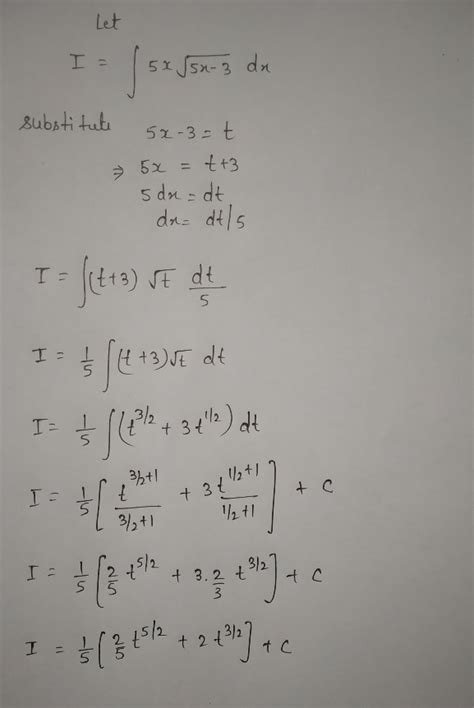 Let
I = ∫ 5x √5x-3 dx
substitute 5x-3 = t
⇒ 5x = t+3
5 dx = dt
dx = dt/5
I = ∫(t+3) √t dt/5
I = 1/5 ∫(t+3)√t dt
I = 1/5 ∫(t^3/2 + 3t^1/2) dt
I = 1/5 [ t^3/2+1 / 3/2+1 + 3 t^1/2+1 / 1/2+1 ] + C
I = 1/5 [ 2/5 t^5/2 + 3. 2/3 t^3/2 ] + C
I = 1/5 [ 2/5 t^5/2 + 2 t^3/2 ] + C